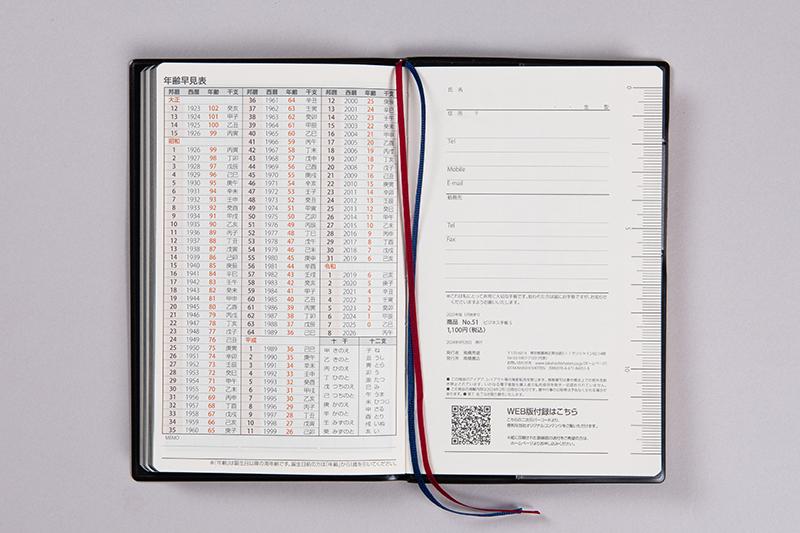 年齢早見表
邦暦 西暦 年齢 干支
大正
12 1923 102 癸亥
13 1924 101 甲子
14 1925 100 乙丑
15 1926 99 丙寅
昭和
1 1926 99 丙寅
2 1927 98 丁卯
3 1928 97 戊辰
4 1929 96 己巳
5 1930 95 庚午
6 1931 94 辛未
7 1932 93 壬申
8 1933 92 癸酉
9 1934 91 甲戌
10 1935 90 乙亥
11 1936 89 丙子
12 1937 88 丁丑
13 1938 87 戊寅
14 1939 86 己卯
15 1940 85 庚辰
16 1941 84 辛巳
17 1942 83 壬午
18 1943 82 癸未
19 1944 81 甲申
20 1945 80 乙酉
21 1946 79 丙戌
22 1947 78 丁亥
23 1948 77 戊子
24 1949 76 己丑
25 1950 75 庚寅
26 1951 74 辛卯
27 1952 73 壬辰
28 1953 72 癸巳
29 1954 71 甲午
30 1955 70 乙未
31 1956 69 丙申
32 1957 68 丁酉
33 1958 67 戊戌
34 1959 66 己亥
35 1960 65 庚子
邦暦 西暦 年齢 干支
36 1961 64 辛丑
37 1962 63 壬寅
38 1963 62 癸卯
39 1964 61 甲辰
40 1965 60 乙巳
41 1966 59 丙午
42 1967 58 丁未
43 1968 57 戊申
44 1969 56 己酉
45 1970 55 庚戌
46 1971 54 辛亥
47 1972 53 壬子
48 1973 52 癸丑
49 1974 51 甲寅
50 1975 50 乙卯
51 1976 49 丙辰
52 1977 48 丁巳
53 1978 47 戊午
54 1979 46 己未
55 1980 45 庚申
56 1981 44 辛酉
57 1982 43 壬戌
58 1983 42 癸亥
59 1984 41 甲子
60 1985 40 乙丑
61 1986 39 丙寅
62 1987 38 丁卯
63 1988 37 戊辰
64 1989 36 己巳
平成
1 1989 36 己巳
2 1990 35 庚午
3 1991 34 辛未
4 1992 33 壬申
5 1993 32 癸酉
6 1994 31 甲戌
7 1995 30 乙亥
8 1996 29 丙子
9 1997 28 丁丑
10 1998 27 戊寅
11 1999 26 己卯
邦暦 西暦 年齢 干支
12 2000 25 庚辰
13 2001 24 辛巳
14 2002 23 壬午
15 2003 22 癸未
16 2004 21 甲申
17 2005 20 乙酉
18 2006 19 丙戌
19 2007 18 丁亥
20 2008 17 戊子
21 2009 16 己丑
22 2010 15 庚寅
23 2011 14 辛卯
24 2012 13 壬辰
25 2013 12 癸巳
26 2014 11 甲午
27 2015 10 乙未
28 2016 9 丙申
29 2017 8 丁酉
30 2018 7 戊戌
31 2019 6 己亥
令和
1 2019 6 己亥
2 2020 5 庚子
3 2021 4 辛丑
4 2022 3 壬寅
5 2023 2 癸卯
6 2024 1 甲辰
7 2025 0 乙巳
8 2026 丙午
十干 十二支
甲 きのえ
乙 きのと
丙 ひのえ
丁 ひのと
戊 つちのえ
己 つちのと
庚 かのえ
辛 かのと
壬 みずのえ
癸 みずのと
子 ね
丑 うし
寅 とら
卯 う
辰 たつ
巳 み
午 うま
未 ひつじ
申 さる
酉 とり
戌 いぬ
亥 い
MEMO
※「年齢」は誕生日以降の満年齢です。誕生日前の方は「年齢」から1歳を引いてください。
氏名
生 型
住所 〒
Tel
Mobile
E-mail
勤務先
Tel
Fax
商品 No.51 ビジネス手帳 5
1,100円(税込)
WEB版付録はこちら
こちらの二次元バーコードより、
便利な当社オリジナルコンテンツをご覧いただけます。
ホームページよりお申し込みください。
0
5
10